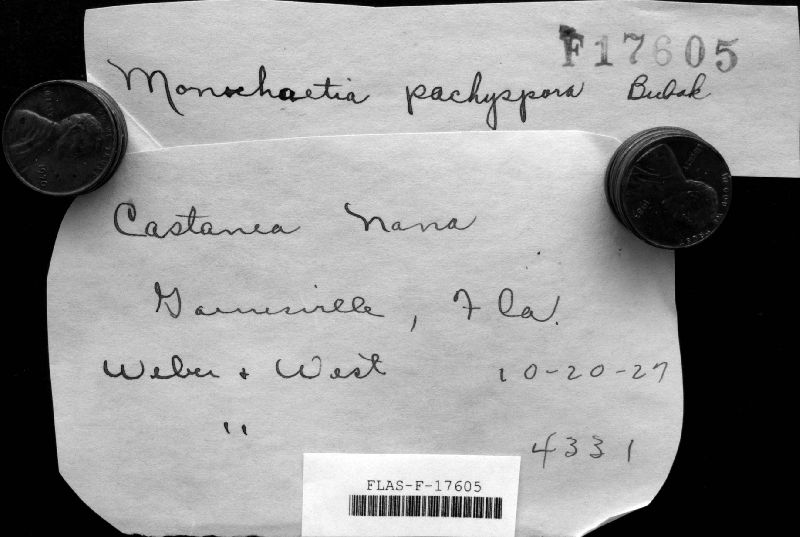 F17605
Monochaetia pachyspora Bubak
Castanea nana
Gainesville, Fla.
Weber + West 10-20-27
" 4331
FLAS-F-17605